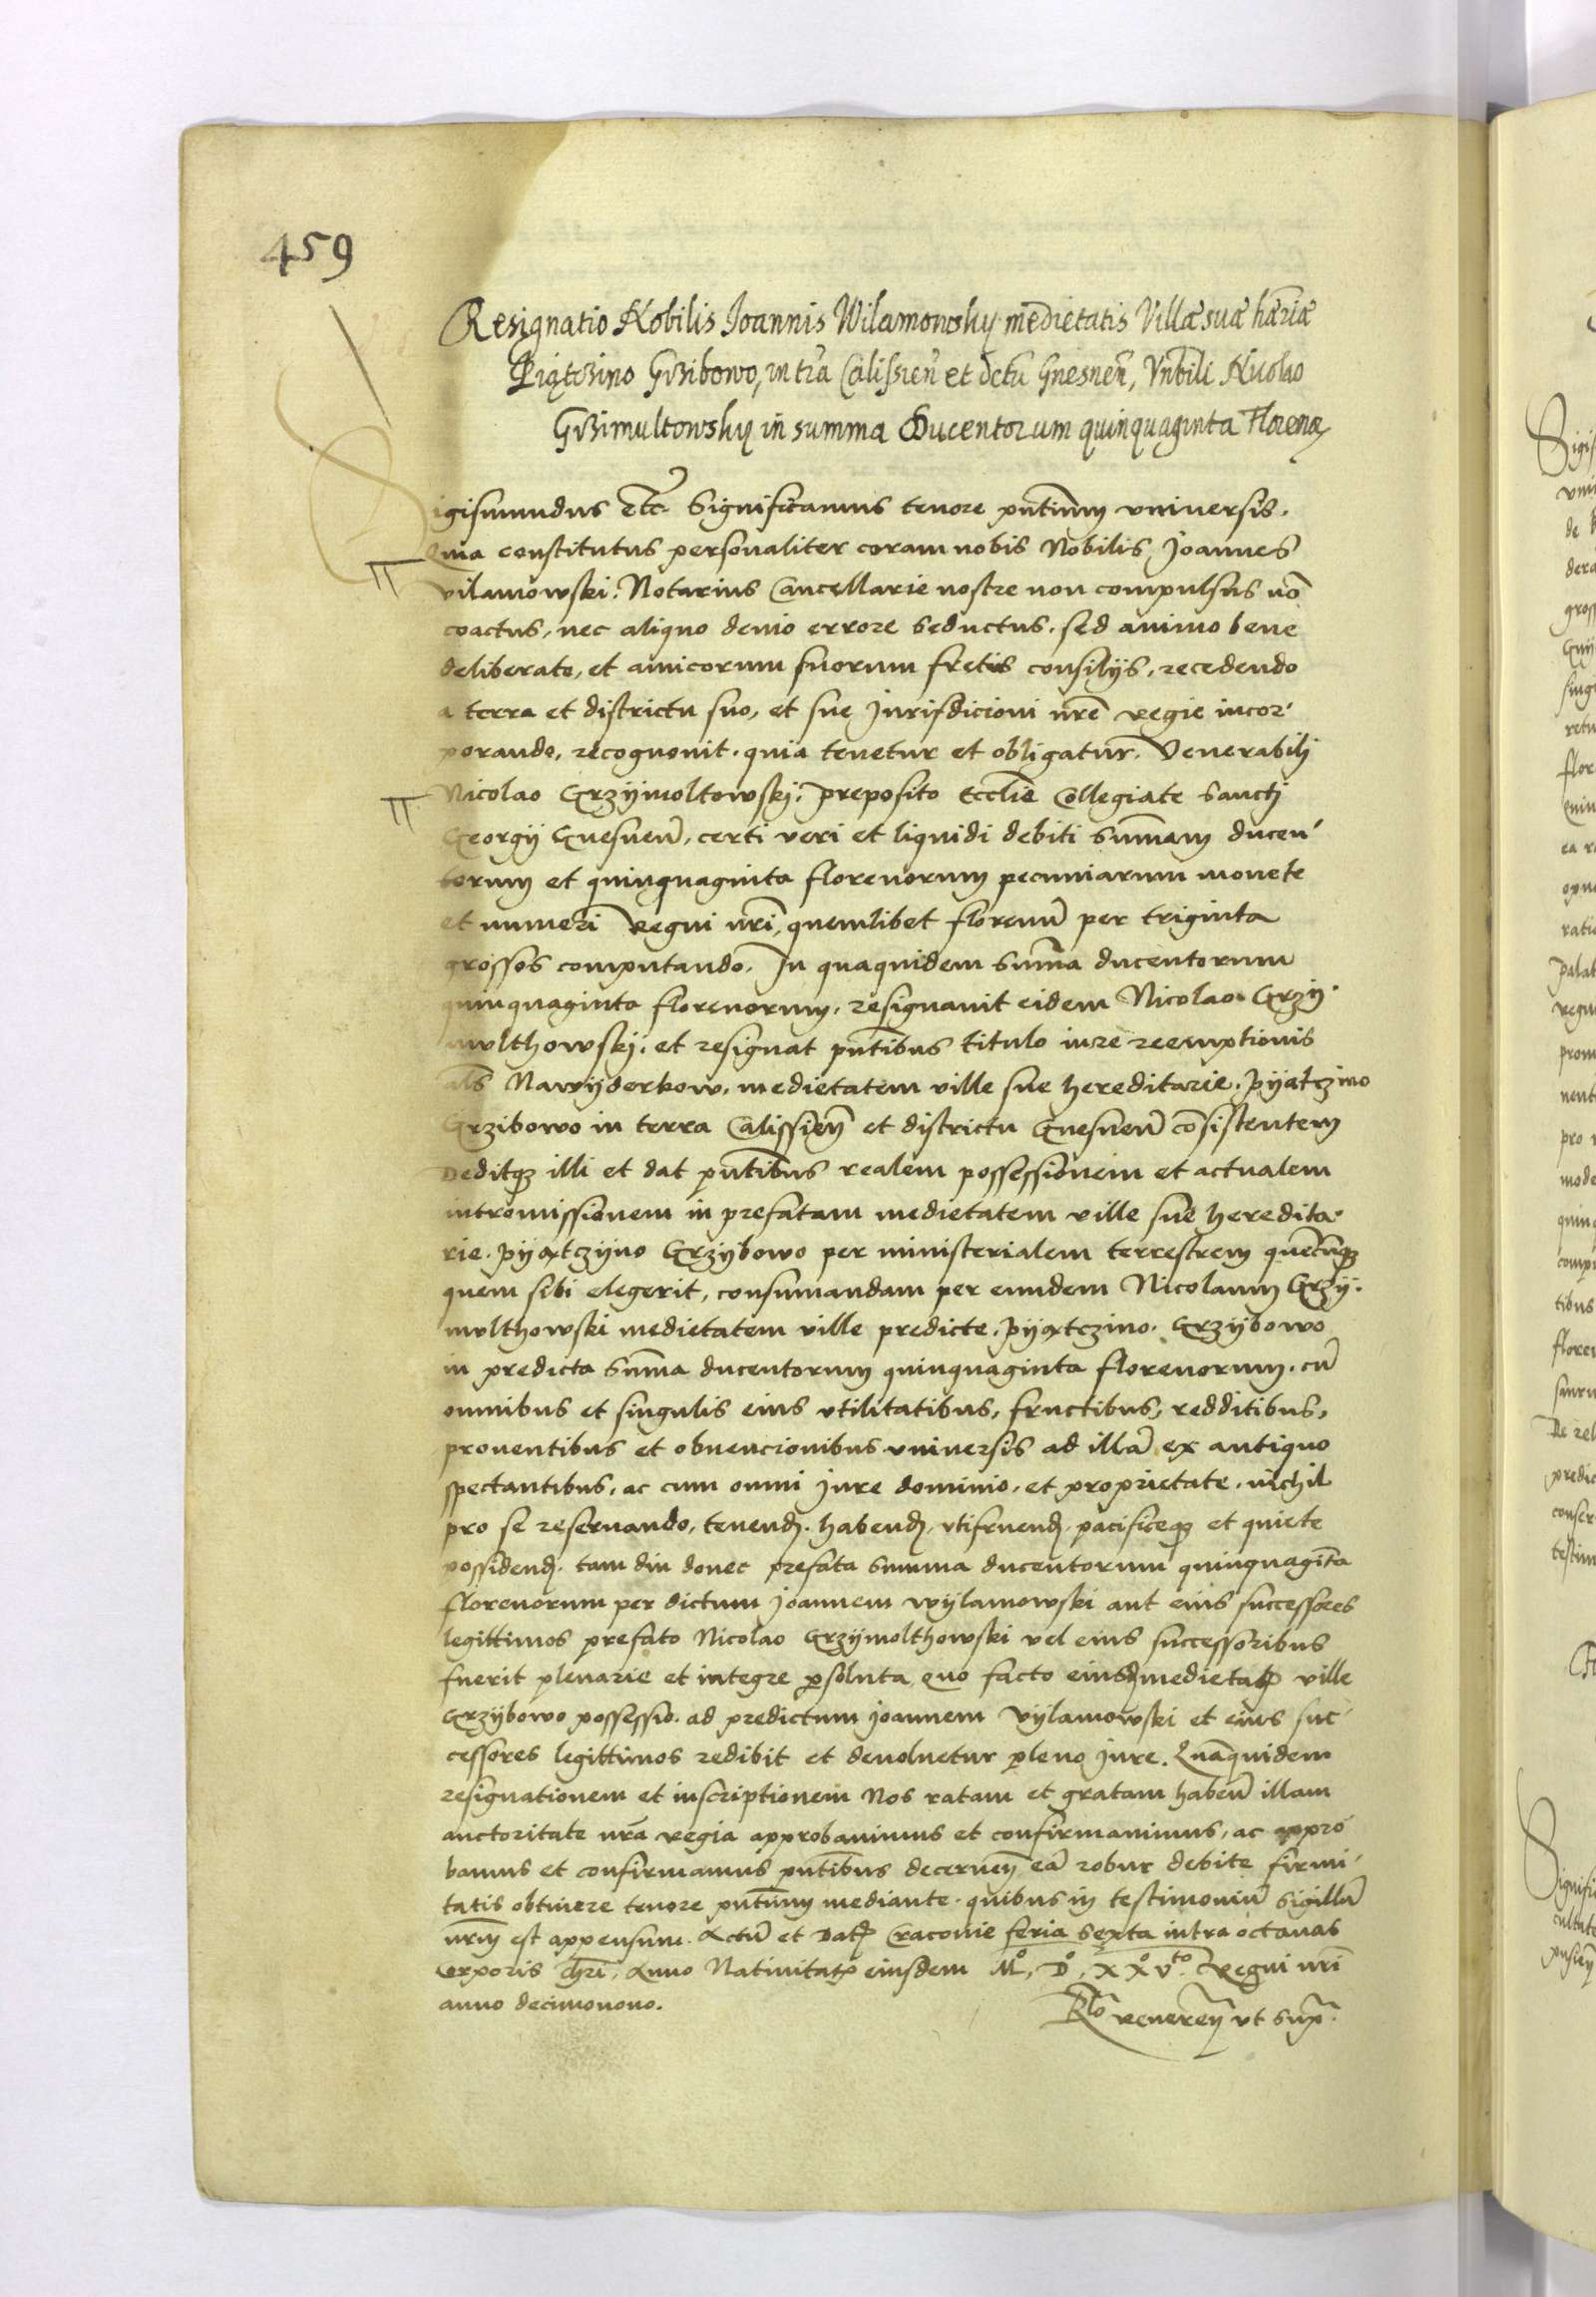 459
Resignatio Nobilis Joannis Wilamowsky medietatis Villæ suæ hæriæ
Piątczino Grzibowo, in tra Calissien et dctu Gnesnen, Vnbili Nicolao
Grzimultowsky in summa Ducentorum quinquaginta Floreno
Sigismundus Etc. Significamus tenore pntium vniversis.
Quia constitutus personaliter coram nobis Nobilis Joannes
vilamowski. Notarius Cancellarie nostre non compulsus no
coactus, nec aliquo devio errore seductus. sed animo bene
deliberato, et amicorum suorum fretus consilijs, recedendo
a terra et districtu suo, et sue Jurisdicioni nre regie incor-
porando, recognovit. quia tenetur et obligatur. Venerabilj
Nicolao Grzymoltowskj. preposito Ecclie Collegiate Sanctj
Georgij Gnesnen, certi veri et liquidi debiti Summam ducen-
torum et quinquaginta florenorum pecuniarum monete
et numeri Regni nri, quemlibet florenu per triginta
grossos computando. In quaquidem Summa ducentorum
quinquaginta florenorum, resignavit eidem Nicolao Grzy-
multhowskj. et resignat pntibus titulo iure reemptionis
als Nawyderkow, medietatem ville sue hereditarie. Pyatczino
Grzibowo in terra Calissien et districtu Gnesnen consistentem
Deditq illi et dat pntibus realem possessionem et actualem
intromissionem in prefatam medietatem ville sue heredita-
rie. Pyątczyno Grzybowo per ministerialem terrestrem quemcumq
quem sibi elegerit, consumandam per eundem Nicolaum Grzy-
multhowski medietatem ville predicte. Pyątczino. Grzybowo
in predicta Summa ducentorum quinquaginta florenorum. cu
omnibus et singulis eius vtilitatibus, fructibus, redditibus,
proventibus et obvencionibus vniversis ad illa ex antiquo
spectantibus, ac cum omni Jure dominio, et proprietate, nichil
pro se reservando, tenend. habend, vtifruend, pacificeq et quiete
possidend. tam diu donec prefata summa ducentorum quinquaginta
florenorum per dictum Joannem wylamowski aut eius successores
legittimos prefato Nicolao Grzymolthowski vel eius successoribus
fuerit plenarie et integre psoluta, quo facto eiusd medietatis ville
Grzybowo possessio. ad predictum Joannem Vylamowski et eius suc-
cessores legittimos redibit et devoluetur pleno Jure. Quaquidem
resignationem et inscriptionem Nos ratam et gratam haben illam
auctoritate nra regia approbavimus et confirmavimus, ac appro-
bamus et confirmamus pntibus decernen ea robur debite firmi-
tatis obtinere tenore pntium mediante. quibus in testimoniu Sigillu
nrm est appensum. Actu et Dat Cracovie feria Sexta intra octavas
Corporis Chri, Anno Nativitatis eiusdem Mo, Do, XXVto. Regni nri
anno decimonono.
Rlo veneren vt Supra.